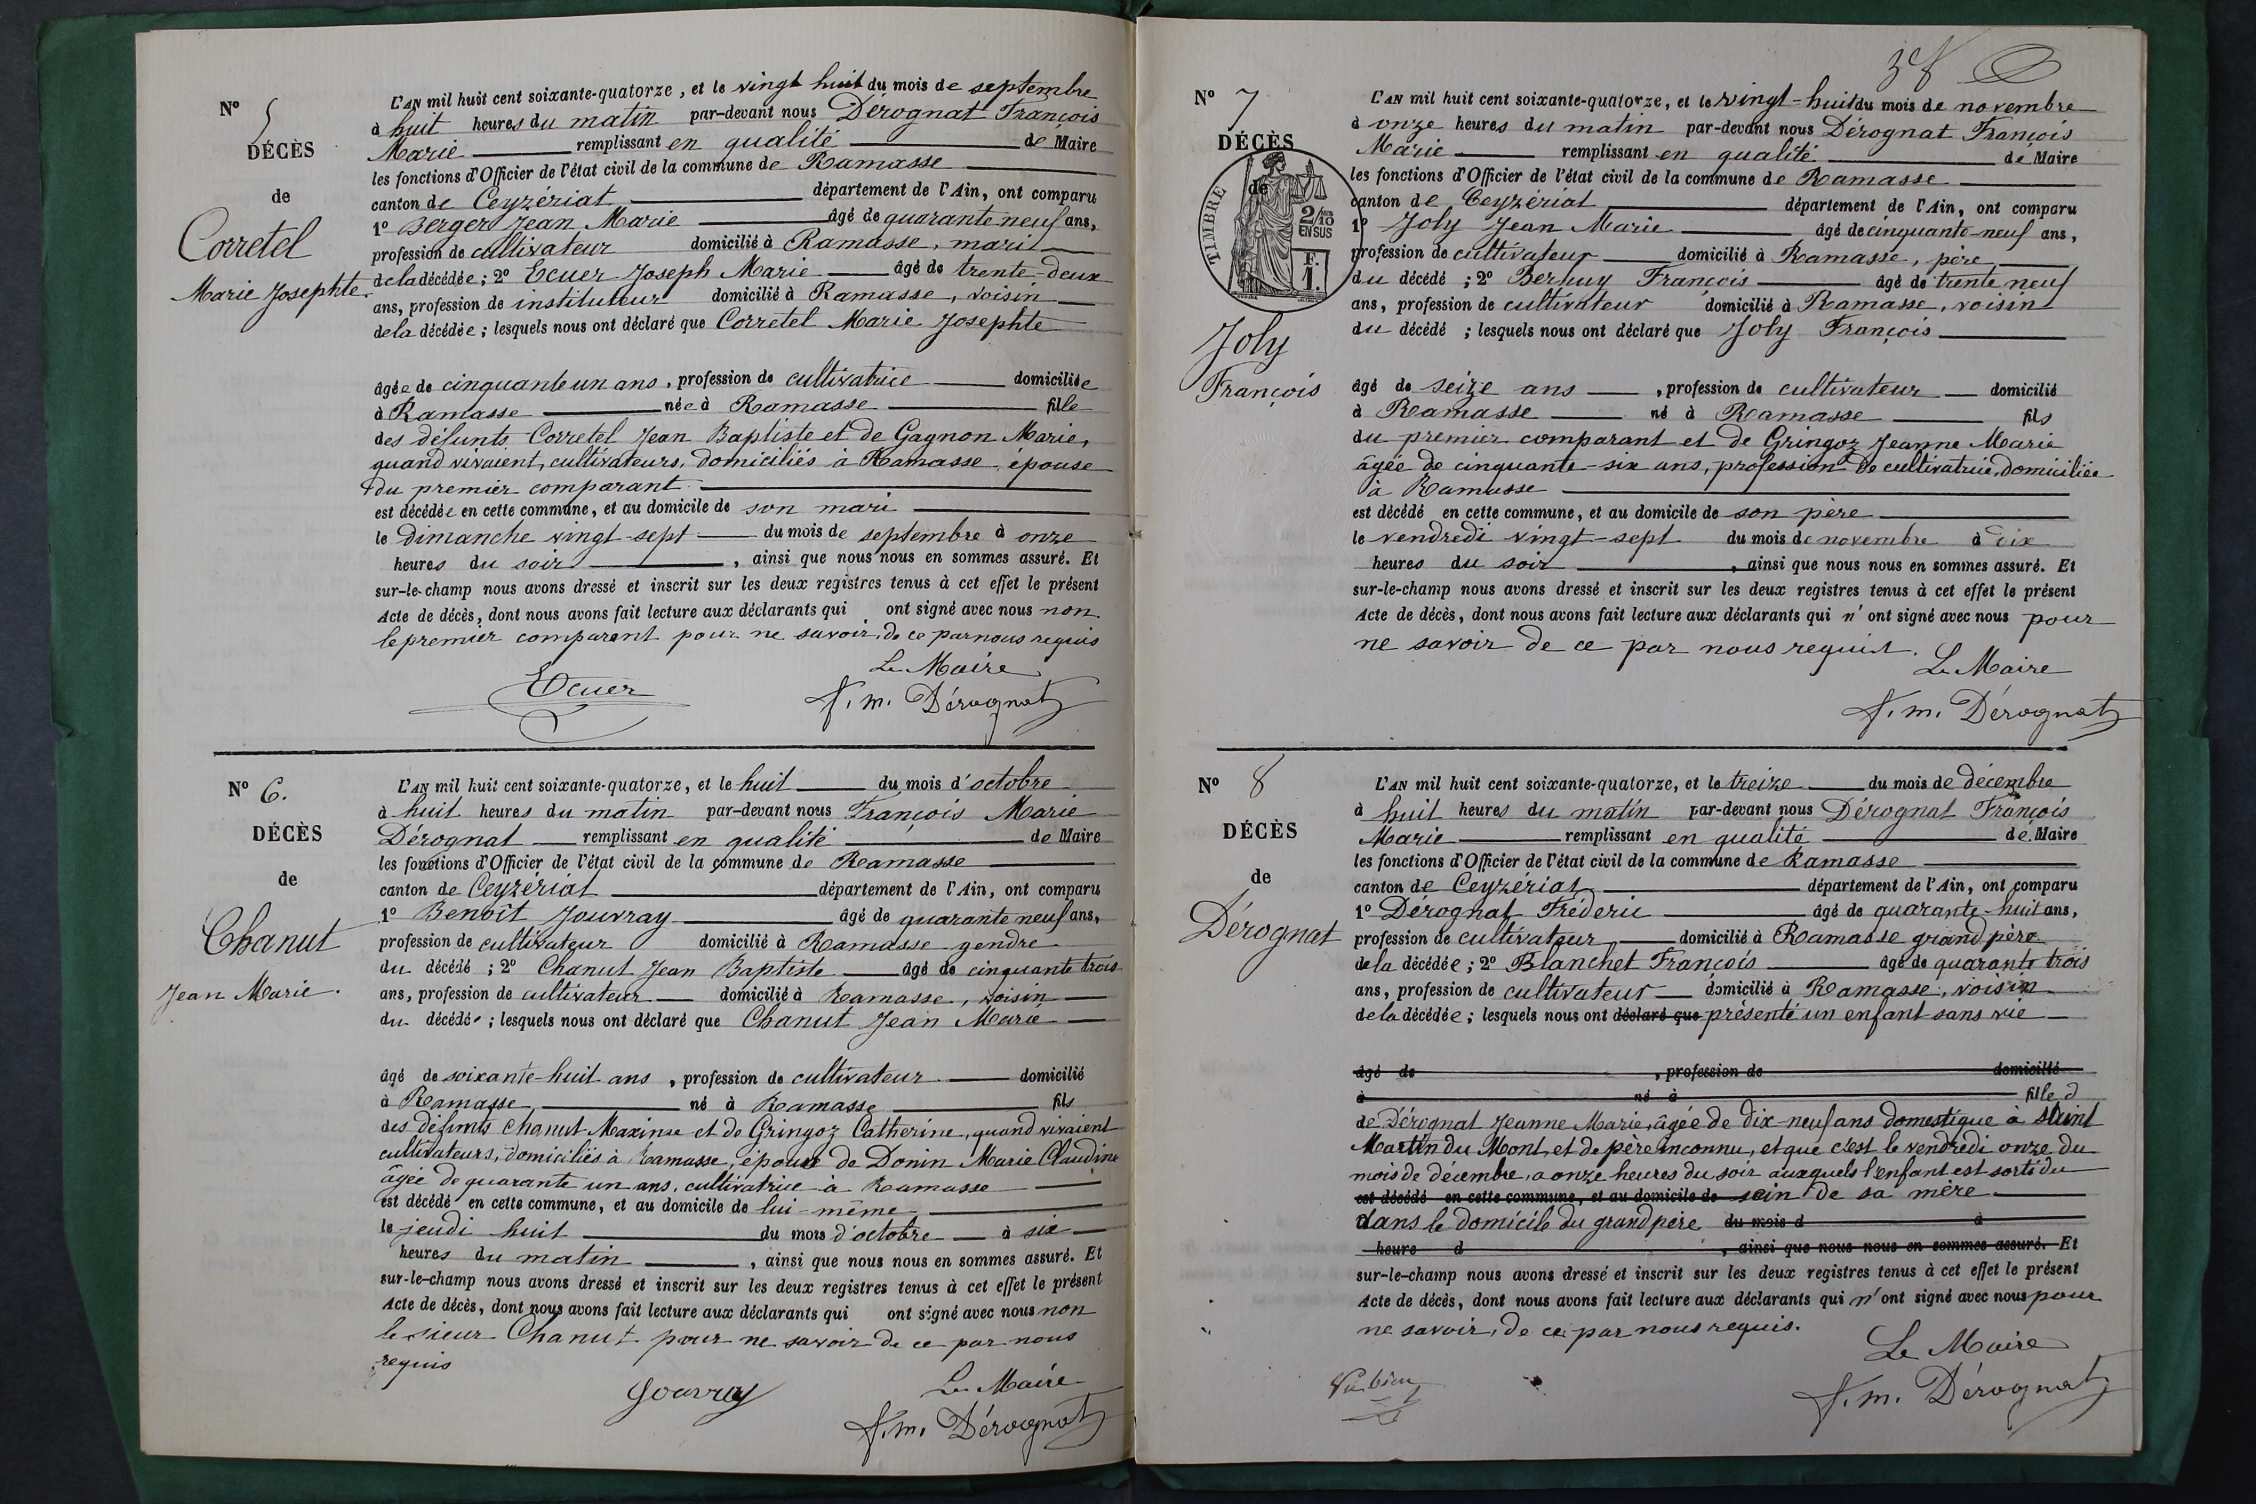 N° 5
DÉCÈS
de
Corretel
Marie Josephte.
L'AN mil huit cent soixante-quatorze, et le vingt huit du mois de septembre
à huit heures du matin par-devant nous Dérognat François
Marie remplissant en qualité de Maire
les fonctions d'Officier de l'état civil de la commune de Ramasse
canton de Ceyzériat département de l'Ain, ont comparu
1° Berger Jean Marie âgé de quarante neuf ans,
profession de cultivateur domicilié à Ramasse, mari
de la décédée; 2° Ecuer Joseph Marie âgé de trente-deux
ans, profession de instituteur domicilié à Ramasse, voisin
de la décédée; lesquels nous ont déclaré que Corretel Marie Josephte
âgée de cinquante un ans, profession de cultivatrice domiciliée
à Ramasse née à Ramasse fille
des défunts Corretel Jean Baptiste et de Gagnon Marie,
quand vivaient, cultivateurs, domiciliés à Ramasse, épouse
du premier comparant
est décédée en cette commune, et au domicile de son mari
le dimanche vingt-sept du mois de septembre à onze
heures du soir, ainsi que nous nous en sommes assuré. Et
sur-le-champ nous avons dressé et inscrit sur les deux registres tenus à cet effet le présent
Acte de décès, dont nous avons fait lecture aux déclarants qui ont signé avec nous non
le premier comparant pour ne savoir, de ce par nous requis
Le Maire
Ecuer f. m. Dérognat
N° 6.
DÉCÈS
de
Chanut
Jean Marie.
L'AN mil huit cent soixante-quatorze, et le huit du mois d'octobre
à huit heures du matin par-devant nous François Marie
Dérognat remplissant en qualité de Maire
les fonctions d'Officier de l'état civil de la commune de Ramasse
canton de Ceyzériat département de l'Ain, ont comparu
1° Benoît Jouvray âgé de quarante neuf ans,
profession de cultivateur domicilié à Ramasse gendre
du décédé; 2° Chanut Jean Baptiste âgé de cinquante trois
ans, profession de cultivateur domicilié à Ramasse, voisin
du décédé; lesquels nous ont déclaré que Chanut Jean Marie
âgé de soixante-huit ans, profession de cultivateur domicilié
à Ramasse, né à Ramasse fils
des défunts Chanut Maxime et de Gringoz Catherine, quand vivaient
cultivateurs, domiciliés à Ramasse, époux de Donin Marie Claudine
âgée de quarante un ans, cultivatrice à Ramasse
est décédé en cette commune, et au domicile de lui-même
le jeudi huit du mois d'octobre à six
heures du matin, ainsi que nous nous en sommes assuré. Et
sur-le-champ nous avons dressé et inscrit sur les deux registres tenus à cet effet le présent
Acte de décès, dont nous avons fait lecture aux déclarants qui ont signé avec nous non
le sieur Chanut pour ne savoir de ce par nous
requis
Le Maire
Jouvray f. m. Dérognat
N° 7
DÉCÈS
de
TIMBRE
2/10 EN SUS
F. 1.
Joly
François
L'AN mil huit cent soixante-quatorze, et le vingt-huit du mois de novembre
à onze heures du matin par-devant nous Dérognat François
Marie remplissant en qualité de Maire
les fonctions d'Officier de l'état civil de la commune de Ramasse
canton de Ceyzériat département de l'Ain, ont comparu
1° Joly Jean Marie âgé de cinquante-neuf ans,
profession de cultivateur domicilié à Ramasse, père
du décédé; 2° Berhuy François âgé de trente neuf
ans, profession de cultivateur domicilié à Ramasse, voisin
du décédé; lesquels nous ont déclaré que Joly François
âgé de seize ans, profession de cultivateur domicilié
à Ramasse né à Ramasse fils
du premier comparant et de Gringoz Jeanne Marie
âgée de cinquante-six ans, profession de cultivatrice, domiciliée
à Ramasse
est décédé en cette commune, et au domicile de son père
le vendredi vingt-sept du mois de novembre à dix
heures du soir, ainsi que nous nous en sommes assuré. Et
sur-le-champ nous avons dressé et inscrit sur les deux registres tenus à cet effet le présent
Acte de décès, dont nous avons fait lecture aux déclarants qui n'ont signé avec nous pour
ne savoir de ce par nous requist.
Le Maire
f. m. Dérognat
N° 8
DÉCÈS
de
Dérognat
L'AN mil huit cent soixante-quatorze, et le treize du mois de décembre
à huit heures du matin par-devant nous Dérognat François
Marie remplissant en qualité de Maire
les fonctions d'Officier de l'état civil de la commune de Ramasse
canton de Ceyzériat département de l'Ain, ont comparu
1° Dérognat Fréderic âgé de quarante-huit ans,
profession de cultivateur domicilié à Ramasse grand père
de la décédée; 2° Blanchet François âgé de quarante trois
ans, profession de cultivateur domicilié à Ramasse, voisin
de la décédée; lesquels nous ont déclaré que présenté un enfant sans vie
âgé de , profession de domicilié
à né à fille d
de Dérognat Jeanne Marie, âgée de dix-neuf ans domestique à Saint
Martin du Mont, et de père inconnu, et que c'est le vendredi onze du
mois de décembre, a onze heures du soir auxquels l'enfant est sorti du
est décédé en cette commune, et au domicile de sein de sa mère
dans le domicile du grand père du mois d à
heure d , ainsi que nous nous en sommes assuré. Et
sur-le-champ nous avons dressé et inscrit sur les deux registres tenus à cet effet le présent
Acte de décès, dont nous avons fait lecture aux déclarants qui n'ont signé avec nous pour
ne savoir, de ce par nous requis.
Le Maire
f. m. Dérognat